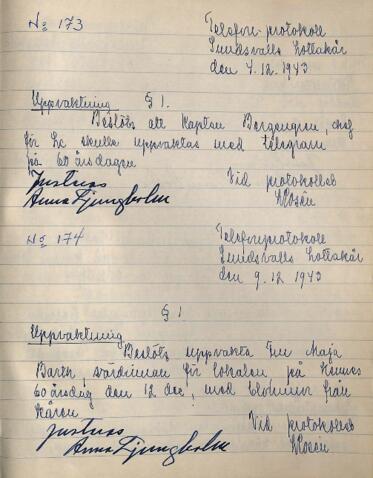 No 173
Telefonprotokoll
Sundsvalls Lottakår
den 7.12.1943
Uppvaktning § 1.
Beslöts att Kapten Borgengren, chef
för Lc skulle uppvaktas med telegram
på 60 årsdagen
Vid protokollet
Justeras
Anna Ljungholm
No 174
Telefonprotokoll
Sundsvalls Lottakår
den 9.12 1943
§ 1
Uppvaktning
Beslöts uppvakta Fru Maja
Barth, värdinnan för lokalen på hennes
60 årsdag den 12 dec, med blommor från
kåren.
Vid protokollet
Justeras
Anna Ljungholm